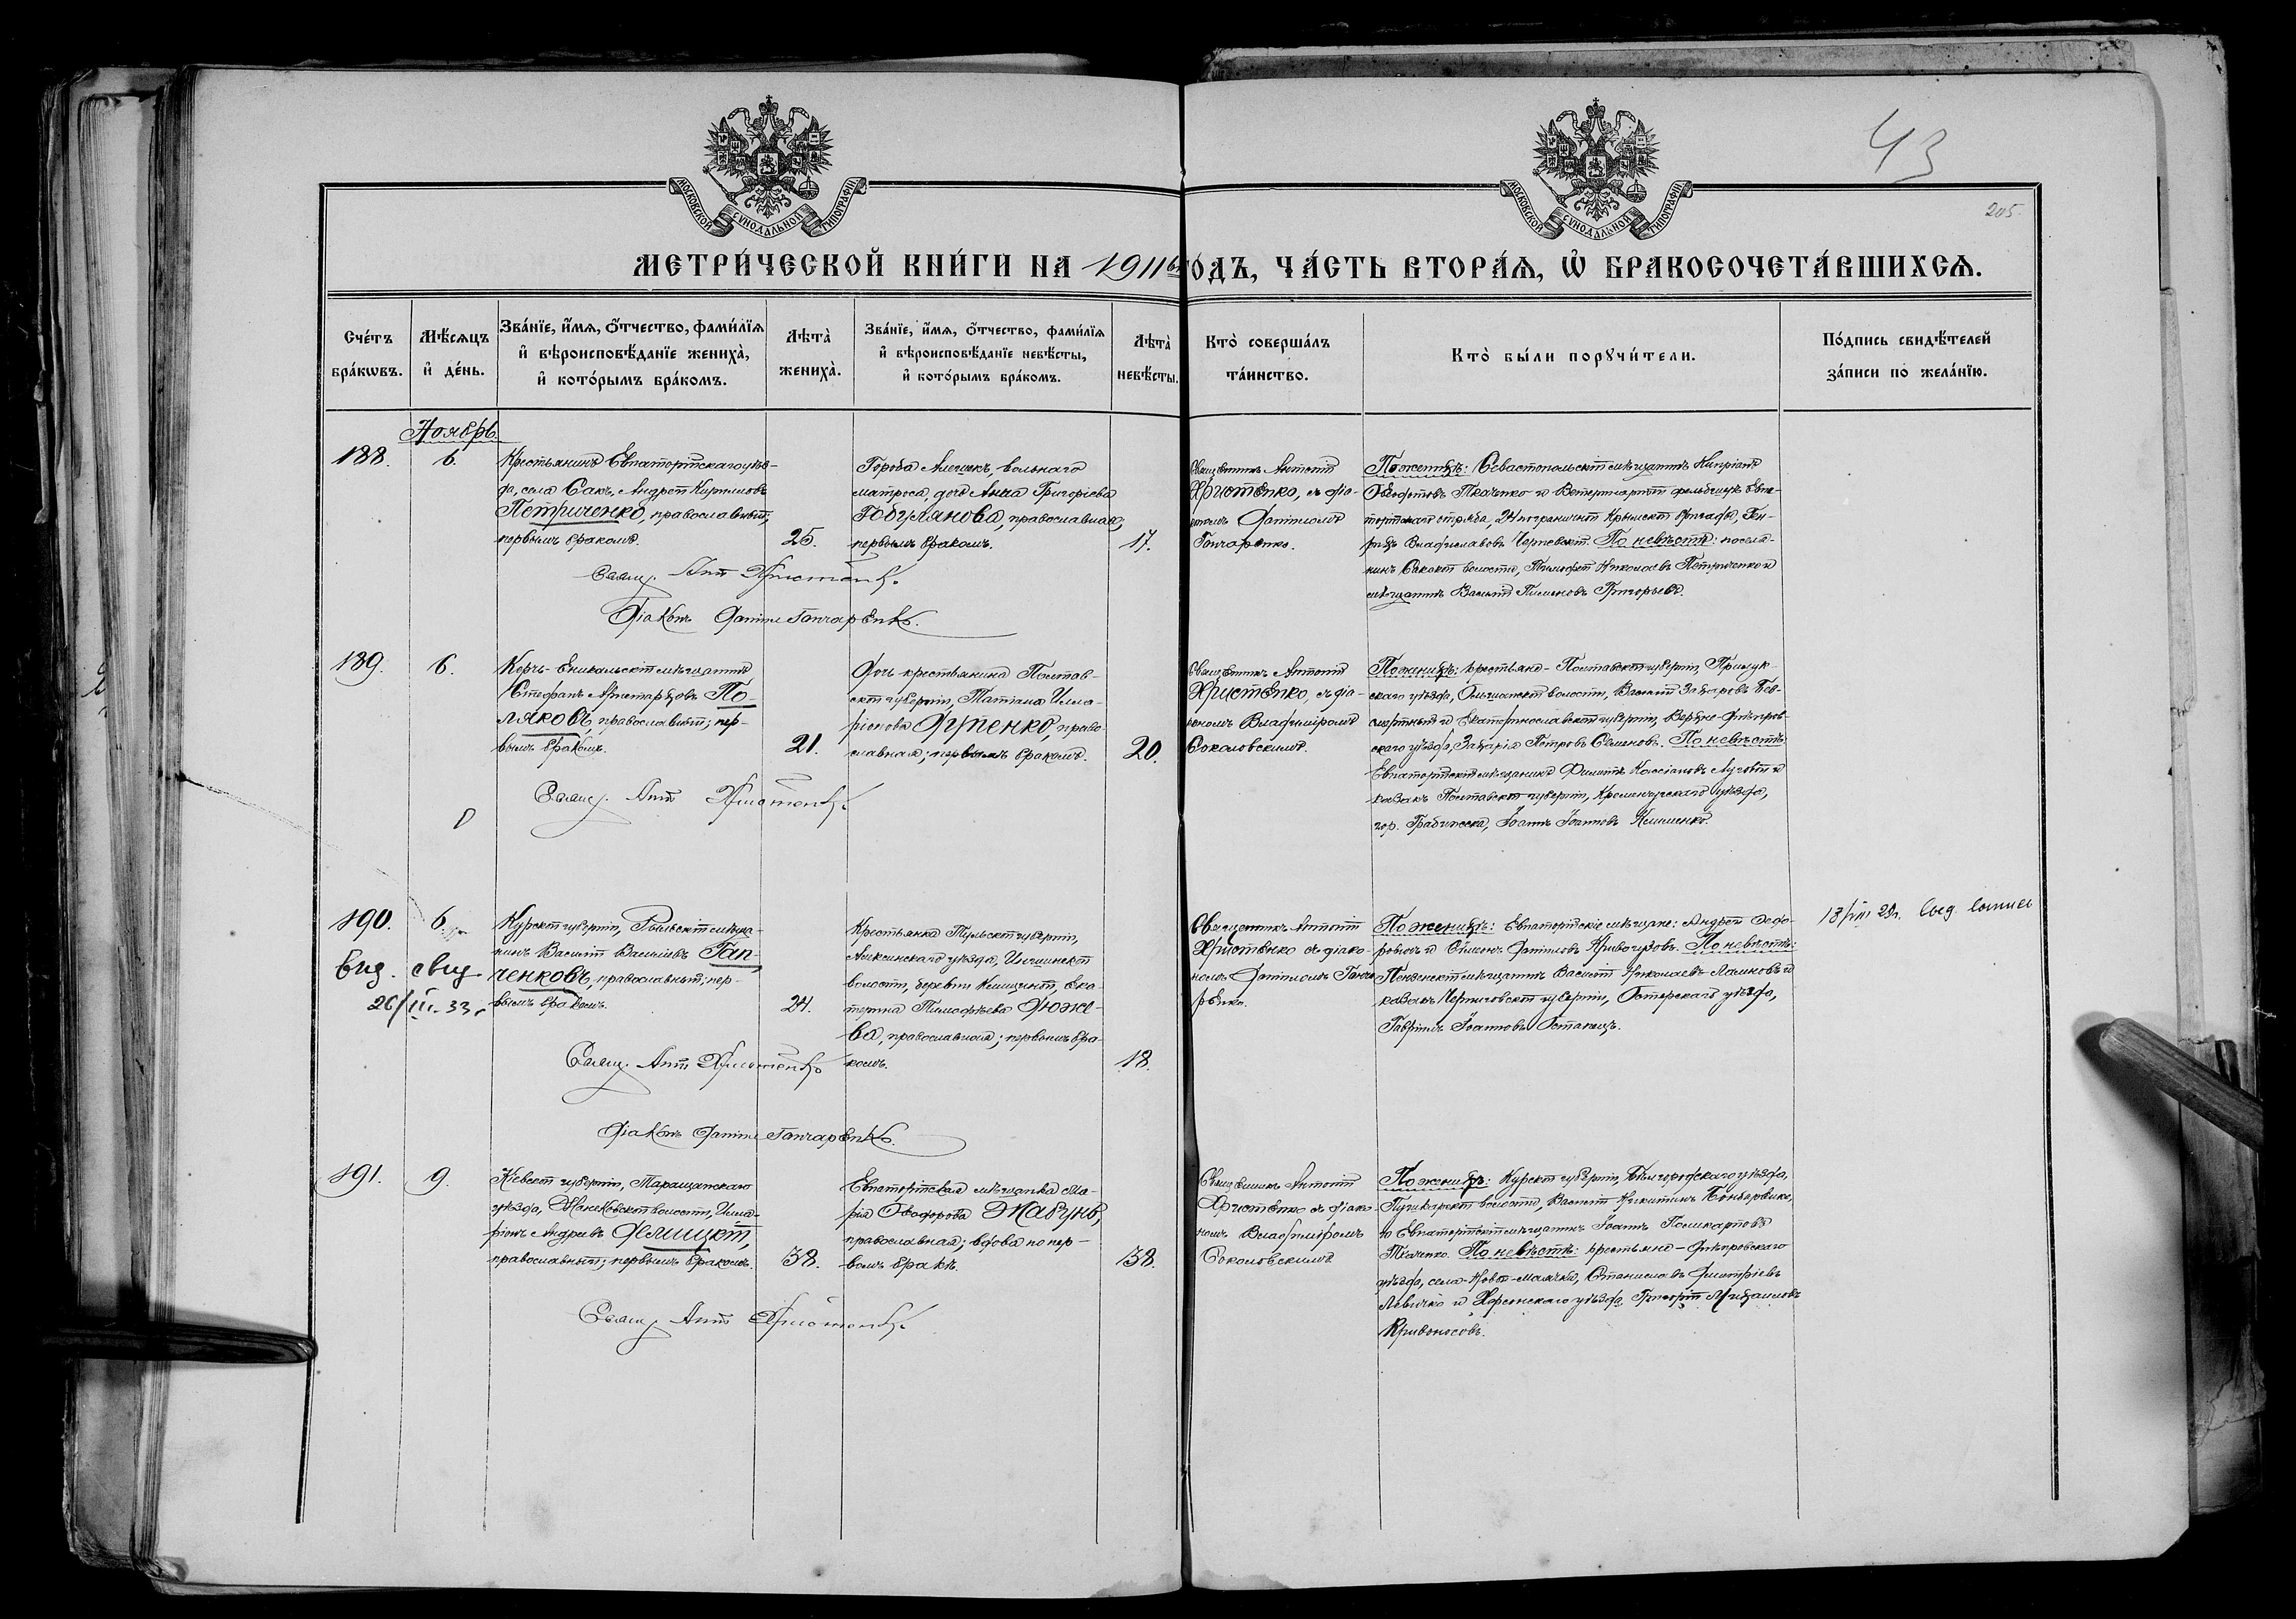 43
205.
МОСКОВСКОЙ СУНОДАЛЬНОЙ ТИПОГРАФІИ
МОСКОВСКОЙ СУНОДАЛЬНОЙ ТИПОГРАФІИ
МЕТРИ́ЧЕСКОЙ КНИ́ГИ НА 1911й ГОДЪ, ЧА́СТЬ ВТОРА́Ѧ, Ѽ БРАКОСОЧЕТА́ВШИХСѦ.
Сче́тъ
бра́кѡвъ.
Мѣ́сѧцъ
и҆ де́нь.
Зва́нїе, и҆́мѧ, ѻ҆́тчество, фами́лїѧ
и҆ вѣроисповѣ́данїе жениха̀,
и҆ кото́рымъ бра́комъ.
Лѣта̀
жениха̀.
Зва́нїе, и҆́мѧ, ѻ҆́тчество, фами́лїѧ
и҆ вѣроисповѣ́данїе невѣ́сты,
и҆ кото́рымъ бра́комъ.
Лѣта̀
невѣ́сты.
Кто̀ соверша́лъ
та́инство.
Кто̀ бы́ли порꙋчи́тели.
По́дпись свидѣ́телей
за́писи по жела́нїю.
Ноябрь.
188.
6.
Крестьянинъ Евпаторійскаго уѣз-
да, села Сакъ, Андрей Кирилловъ
Петриченко, православный;
первымъ бракомъ.
25.
Города Алешекъ, вольнаго
матроса, дочь Анна Григорьева
православная;
первымъ бракомъ.
17.
Священникъ Антоній
Христенко, съ діа-
кономъ Даніиломъ
Гончаренко.
По женихѣ: Севастопольскій мѣщанинъ Кипріанъ
Ѳеодотовъ Ткаченко и Ветеринарный фельдшеръ Евпа-
торійскаго отряда, 24 пограничной Крымской бригады, Ген-
рихъ Владиславовъ Черневскій. По невѣстѣ: поселя-
нинъ Сакской волости, Тимофей Николаевъ Петриченко и
мѣщанинъ Василій Пименовъ Григорьевъ.
Свящ. Ант. Христенко.
Діаконъ Даніилъ Гончаренко.
189.
6.
Керчь-Еникальскій мѣщанинъ
Стефанъ Аристарховъ По-
ляковъ, православный; пер-
вымъ бракомъ.
21.
Дочь крестьянина Полтав-
ской губерніи, Татіана Илла-
ріонова право-
славная; первымъ бракомъ.
20.
Священникъ Антоній
Христенко, съ діа-
кономъ Владиміромъ
Соколовскимъ.
По женихѣ: крестьяне - Полтавской губерніи, Прилук-
скаго уѣзда, Ольшанской волости, Василій Захаровъ Без-
смертный и Екатеринославской губерніи, Верхне-Днѣпров-
скаго уѣзда, Захарія Петровъ Семеновъ. По невѣстѣ:
Евпаторійскій мѣщанинъ Филиппъ Кассіановъ Луговой и
казакъ Полтавской губерніи, Кременчугскаго уѣзда,
гор. Градижска, Іоаннъ Іоанновъ Клименко.
Свящ. Ант. Христенко.
190.
6.
Выд. свид
26/III. 33 г.
Курской губерніи, Рыльскій мѣща-
нинъ Василій Васильевъ Гап-
ченковъ, православный; пер-
вымъ бракомъ.
24.
Крестьянка Тульской губерніи,
Алексинскаго уѣзда,
волости, деревни Ека-
терина Тимофѣева Дюже-
ва, православная; первымъ бра-
комъ.
18.
Священникъ Антоній
Христенко съ діако-
номъ Даніиломъ Гонча-
ренко.
По женихѣ: Евпаторійскіе мѣщане: Андрей
и Симеонъ Даніиловъ По невѣстѣ:
Пензенскій мѣщанинъ Василій Николаевъ и
казакъ Черниговской губерніи, Остерскаго уѣзда,
Гавріилъ Іоанновъ Остапецъ.
Свящ. Ант. Христенко
Діаконъ Даніилъ Гончаренко.
191.
9.
Кіевской губерніи, Таращанскаго
уѣзда, волости, Илла-
ріонъ Андреевъ
православный; первымъ бракомъ.
38.
Евпаторійская мѣщанка Ма-
рія Ѳеодорова Жабунь,
православная; вдова по пер-
вомъ бракѣ.
38.
Священникъ Антоній
Христенко съ діако-
номъ Владиміромъ
Соколовскимъ
По женихѣ: Курской губерніи, Бѣлгородскаго уѣзда,
Пушкарской волости, Василій Никитинъ
и Евпаторійскій мѣщанинъ Іоаннъ Поликарповъ
Ткаченко. По невѣстѣ: крестьяне - Днѣпровскаго
уѣзда, села Новой-Маячки, Станиславъ Дмитріевъ
Левичко и Херсонскаго уѣзда Григорій Михаиловъ
Кривоносовъ.
Свящ. Ант. Христенко.